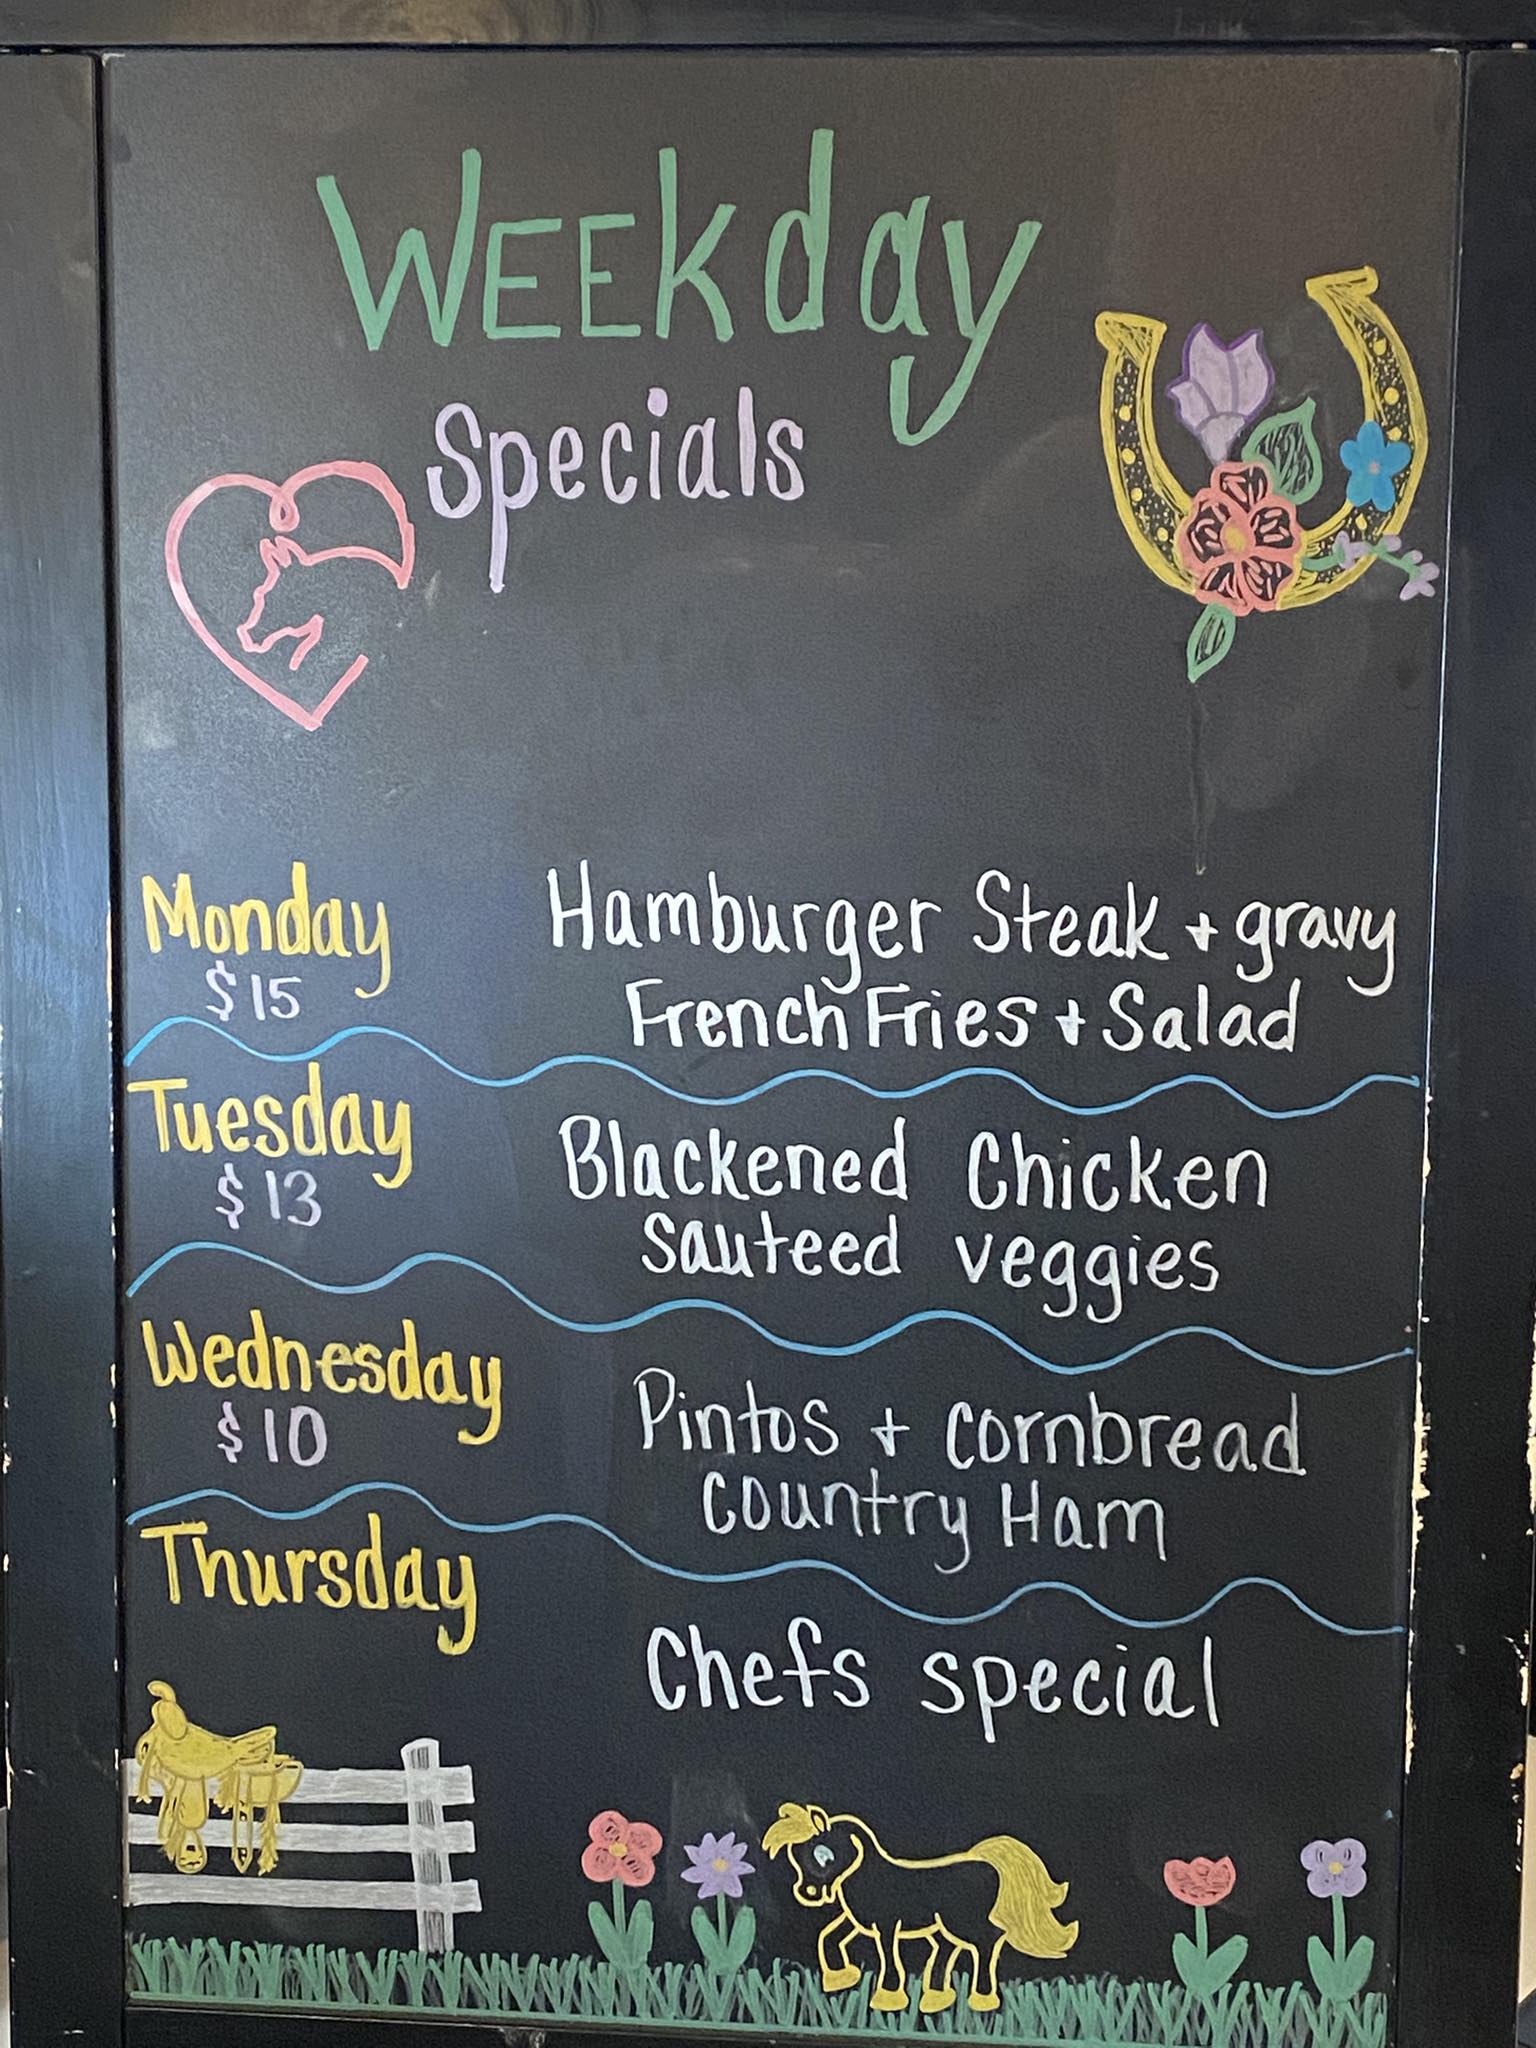 WEEkday
Specials
Monday
$15
Hamburger Steak + gravy
French Fries + Salad
Tuesday
$13
Blackened Chicken
Sauteed veggies
Wednesday
$10
Pintos + cornbread
country Ham
Thursday
Chefs special